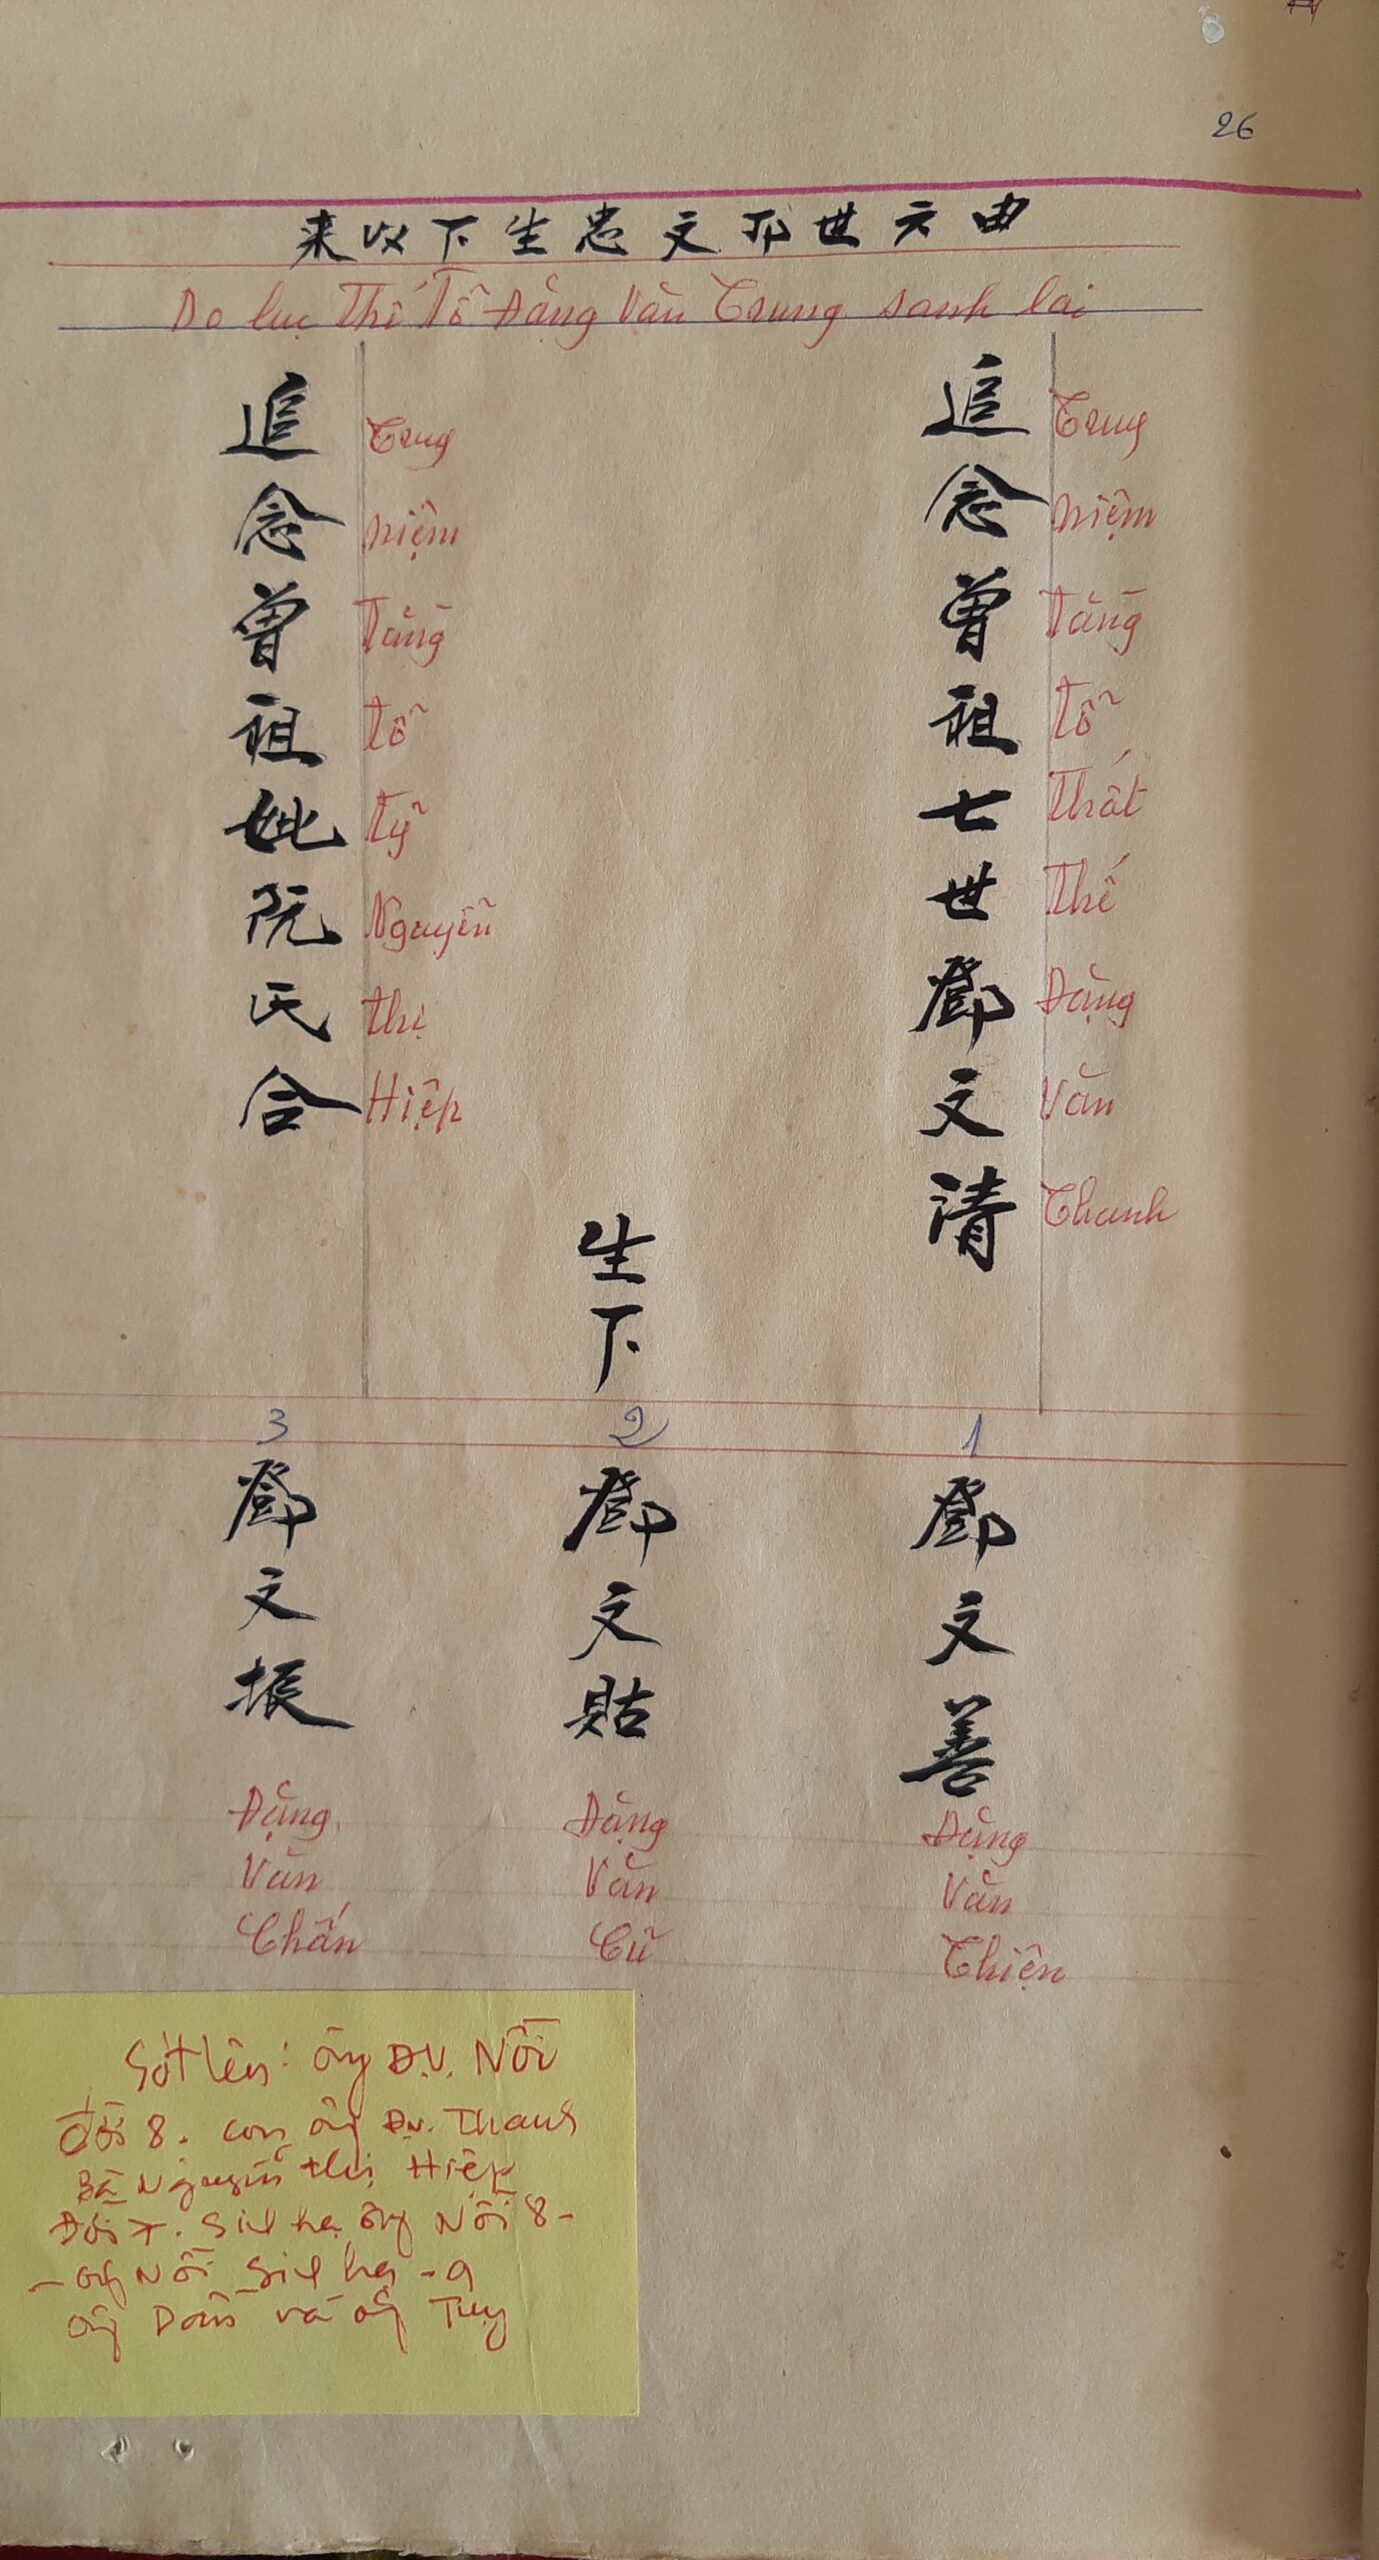 26
由六世祖文忠生下以來
Do lục Thế Tổ Đặng Văn Trung sanh lai
追念曾祖七世鄧文清
Trung
niệm
Tằng
tỗ
Thất
Thế
Đặng
Văn
Thanh
追念曾祖妣阮氏合
Trung
niệm
Tằng
tỗ
Tỹ
Nguyễn
thị
Hiệp
生下
1
鄧文善
Đặng
Văn
Thiện
2
鄧文貼
Đặng
Văn
Cữ
3
鄧文振
Đặng
Văn
Chấn
Sót tên: ông Đ.V. Nồi
đời 8. con ông Đv. Thanh
Bà Nguyễn thị Hiệp
Đời 7. sinh hạ ông Nồi 8-
- ông Nồi sinh hạ - 9
ông Dồn và ông Tuy